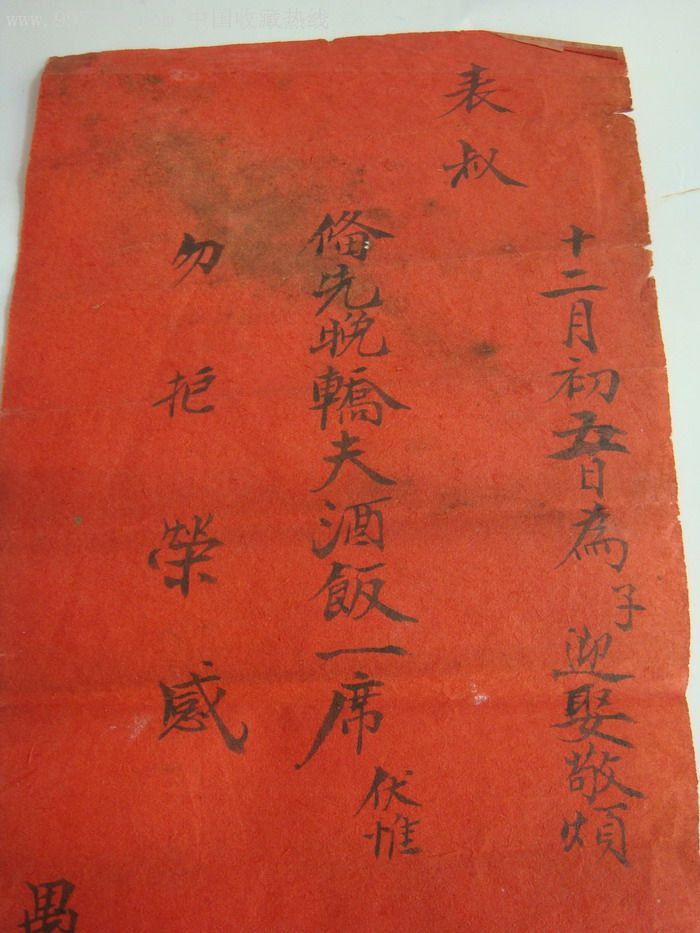 十二月初五日為子迎娶敬煩
表叔
俻先晚轎夫酒飯一席伏惟
勿拒榮感
愚
中国收藏热线